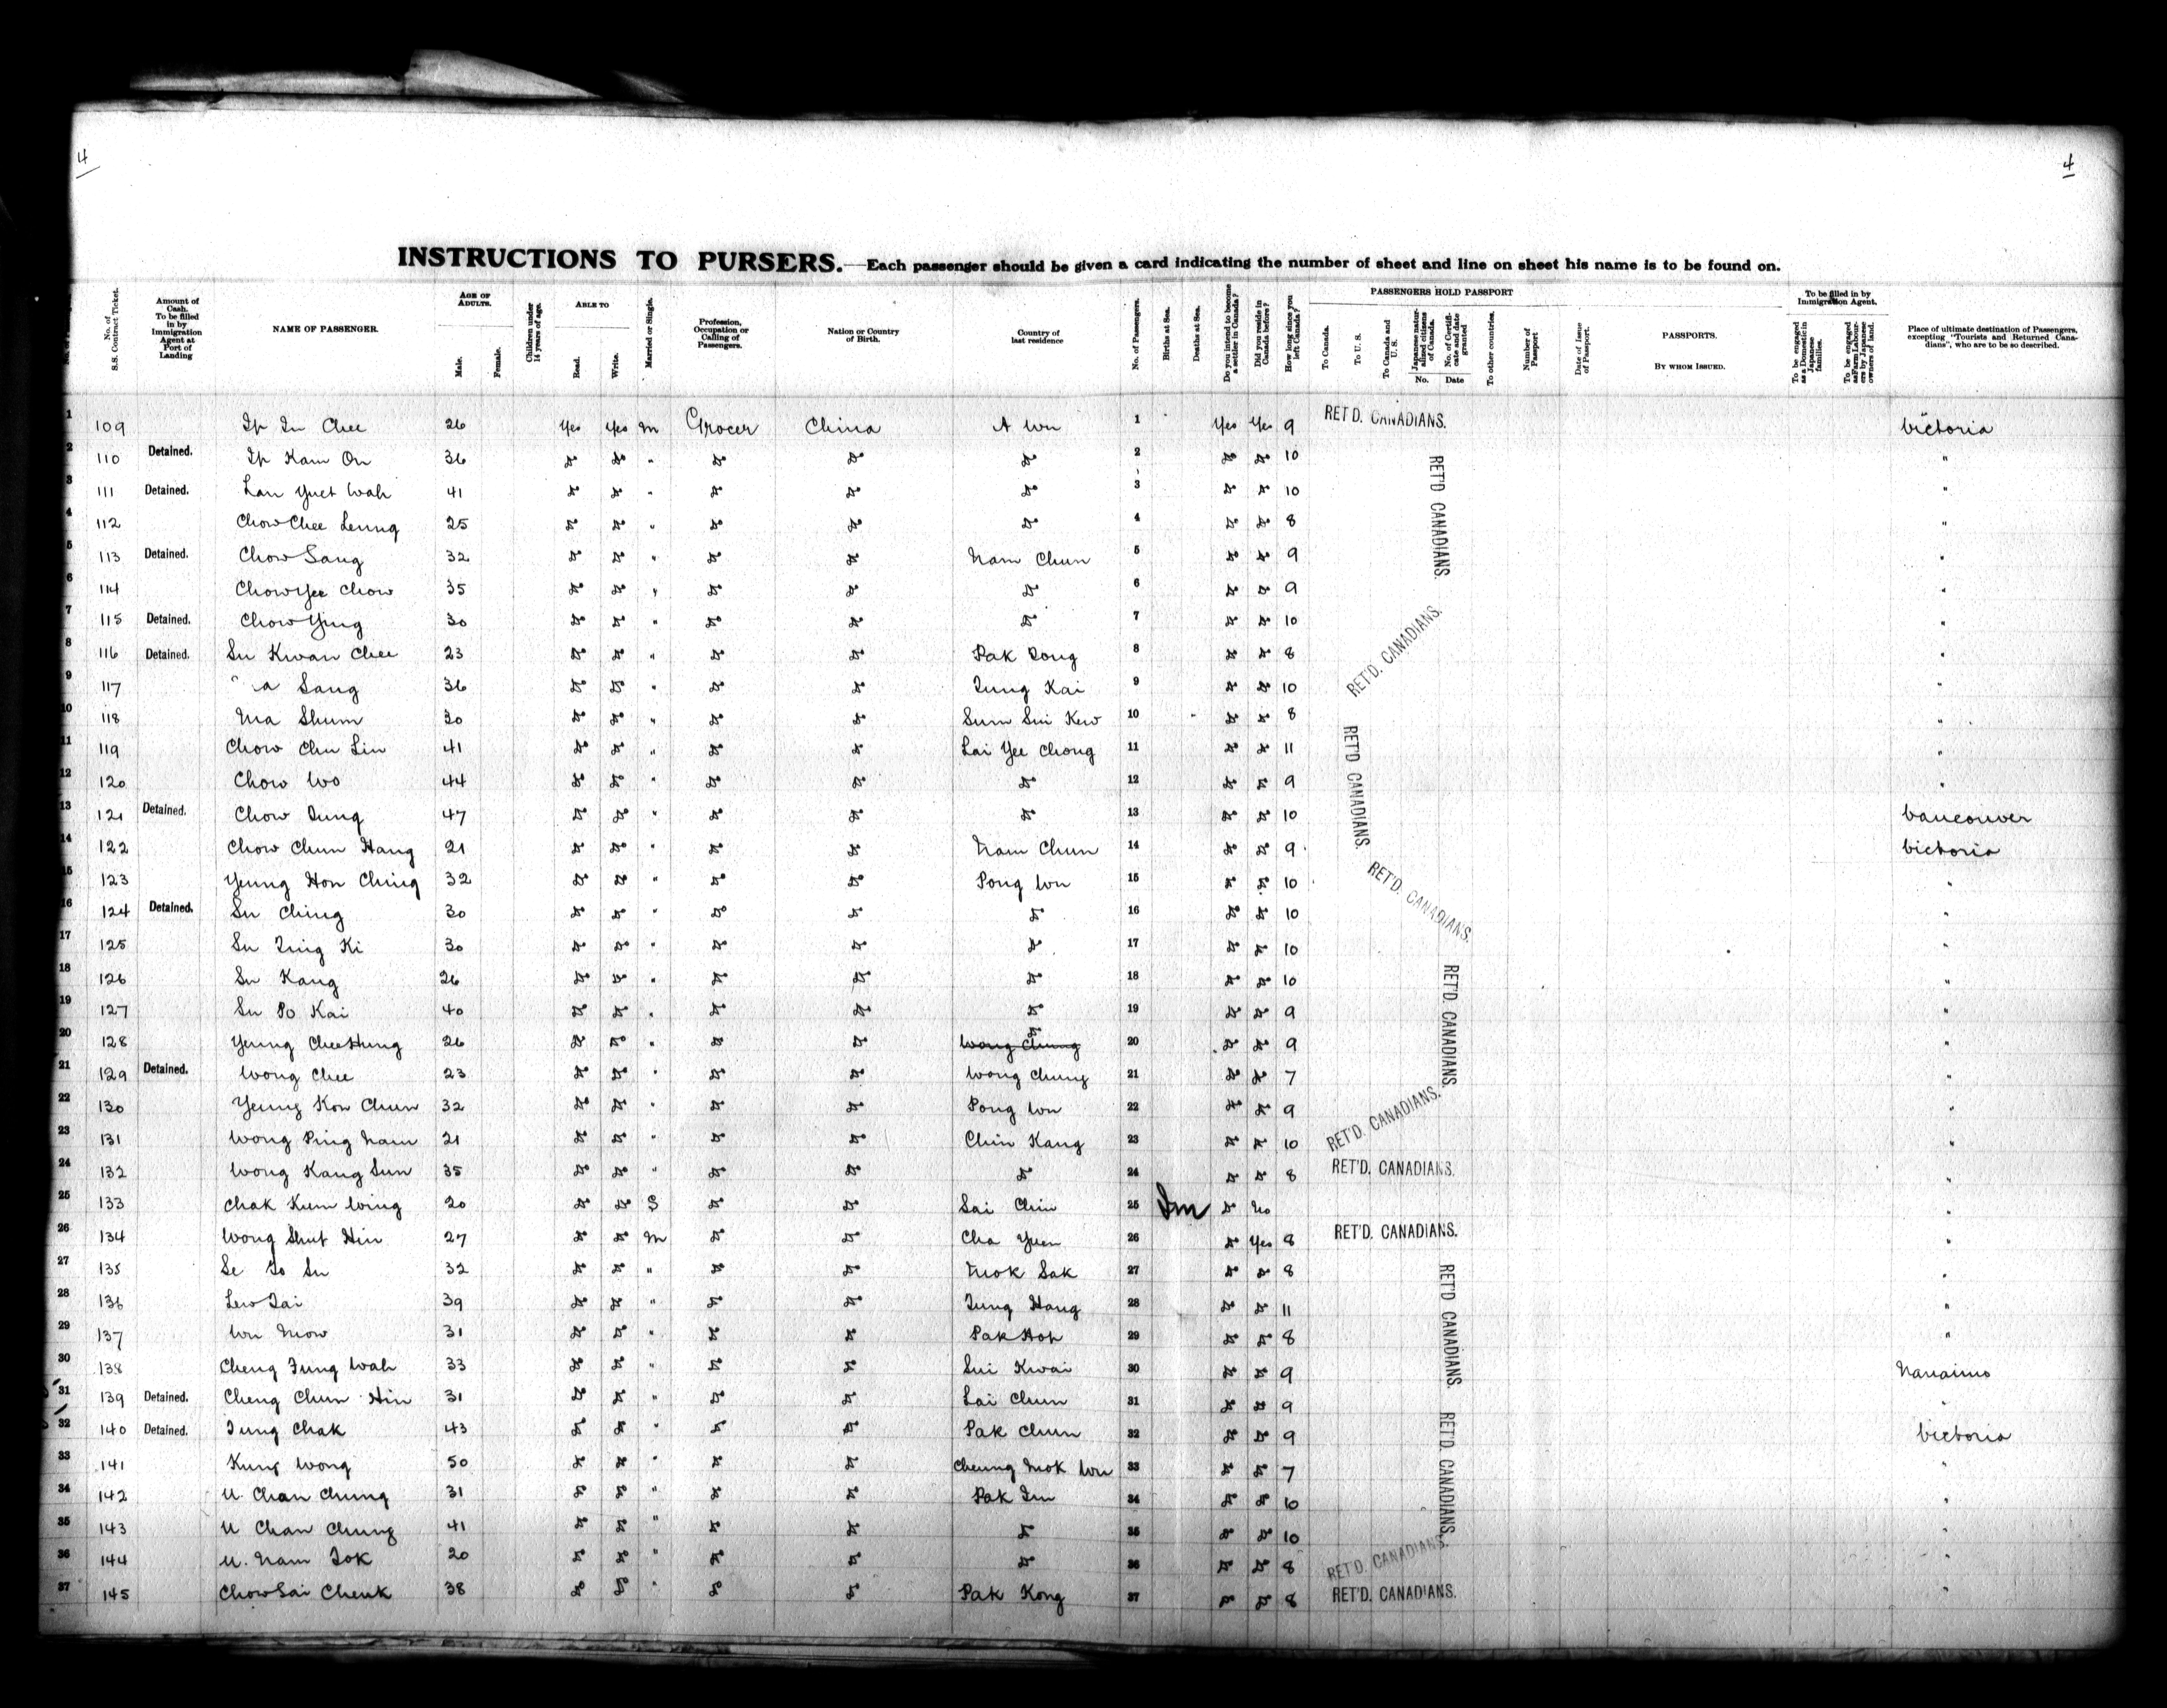 4
4
INSTRUCTIONS TO PURSERS.—Each passenger should be given a card indicating the number of sheet and line on sheet his name is to be found on.
No. of S.S. Contract Ticket. Amount of Cash. To be filled in by Immigration Agent at Port of Landing NAME OF PASSENGER. AGE OF ADULTS. Male. Female. Children under 14 years of age. ABLE TO Read. Write. Married or Single. Profession, Occupation or Calling of Passengers. Nation or Country of Birth. Country of last residence No. of Passengers. Births at Sea. Deaths at Sea. Do you intend to become a settler in Canada? Did you reside in Canada before? How long since you left Canada? PASSENGERS HOLD PASSPORT To Canada. To U. S. To Canada and U. S. Japanese naturalized citizens of Canada. No. No. of Certificate and date granted Date To other countries. Number of Passport Date of Issue of Passport. PASSPORTS. BY WHOM ISSUED. To be filled in by Immigration Agent. To be engaged as a Domestic in Japanese families. To be engaged as Farm Labourers by Japanese owners of land. Place of ultimate destination of Passengers, excepting "Tourists and Returned Canadians", who are to be so described.
1 109 Ip In Chee 26 Yes Yes M Grocer China A Wu 1 Yes Yes 9 RET'D. CANADIANS. Victoria
2 110 Detained. Ip Kam On 36 do do " do do do 2 do do 10 "
3 111 Detained. Lau Yuet Wah 41 do do " do do do 3 do do 10 "
4 112 Chow Chee Leung 25 do do " do do do 4 do do 8 "
RET'D CANADIANS.
5 113 Detained. Chow Sang 32 do do " do do Nam Chun 5 do do 9 "
6 114 Chow Yee Chow 35 do do " do do do 6 do do 9 "
7 115 Detained. Chow Ying 30 do do " do do do 7 do do 10 "
8 116 Detained. Su Kwan Chee 23 do do " do do Pak Dong 8 do do 8 "
RET'D. CANADIANS.
9 117 a Sang 36 do do " do do Tung Kai 9 do do 10 "
10 118 Ma Shum 30 do do " do do Sum Sui Kew 10 do do 8 "
11 119 Chow Chu Lin 41 do do " do do Lai Yee Chong 11 do do 11 "
12 120 Chow Wo 44 do do " do do do 12 do do 9 "
RET'D CANADIANS.
13 121 Detained. Chow Tung 47 do do " do do do 13 do do 10 Vancouver
14 122 Chow Chun Hang 21 do do " do do Nam Chun 14 do do 9 Victoria
15 123 Yeung Hon Ching 32 do do " do do Pong Wu 15 do do 10 "
RET'D. CANADIANS.
16 124 Detained. Su Ching 30 do do " do do do 16 do do 10 "
17 125 Su Ting Ki 30 do do " do do do 17 do do 10 "
18 126 Su Kang 26 do do " do do do 18 do do 10 "
19 127 Su Po Kai 40 do do " do do do 19 do do 9 "
RET'D. CANADIANS.
20 128 Yeung Chee Hung 26 do do " do do Wong Chung do 20 do do 9 "
21 129 Detained. Wong Chee 23 do do " do do Wong Chung 21 do do 7 "
22 130 Yeung Kon Chun 32 do do " do do Pong Wu 22 do do 9 "
23 131 Wong Ping Nam 21 do do " do do Chin Kang 23 do do 10 RET'D. CANADIANS. "
24 132 Wong Kang Sun 35 do do " do do do 24 do do 8 RET'D. CANADIANS. "
25 133 Chak Kum Wing 20 do do S do do Sai Chin 25 do No "
26 134 Wong Shut Hin 27 do do M do do Cha Yuen 26 do Yes 8 RET'D. CANADIANS. "
27 135 Se To Su 32 do do " do do Mok Sak 27 do do 8 "
28 136 Lew Tai 39 do do " do do Tung Hang 28 do do 11 "
RET'D CANADIANS.
29 137 Wu Mow 31 do do " do do Pak Hop 29 do do 8 "
30 138 Cheng Fung Wah 33 do do " do do Sui Kwai 30 do do 9 Nanaimo
31 139 Detained. Cheng Chun Hin 31 do do " do do Lai Chun 31 do do 9 "
32 140 Detained. Tung Chak 43 do do " do do Pak Chun 32 do do 9 Victoria
RET'D. CANADIANS.
33 141 Kung Wong 50 do do " do do Cheung Mok Wu 33 do do 7 "
34 142 U. Chan Chung 31 do do " do do Pak Im 34 do do 10 "
35 143 U Chan Chung 41 do do " do do do 35 do do 10 "
36 144 U. Nam Tok 20 do do " do do do 36 do do 8 RET'D. CANADIANS. "
37 145 Chow Sai Cheuk 38 do do " do do Pak Kong 37 do do 8 RET'D. CANADIANS. "